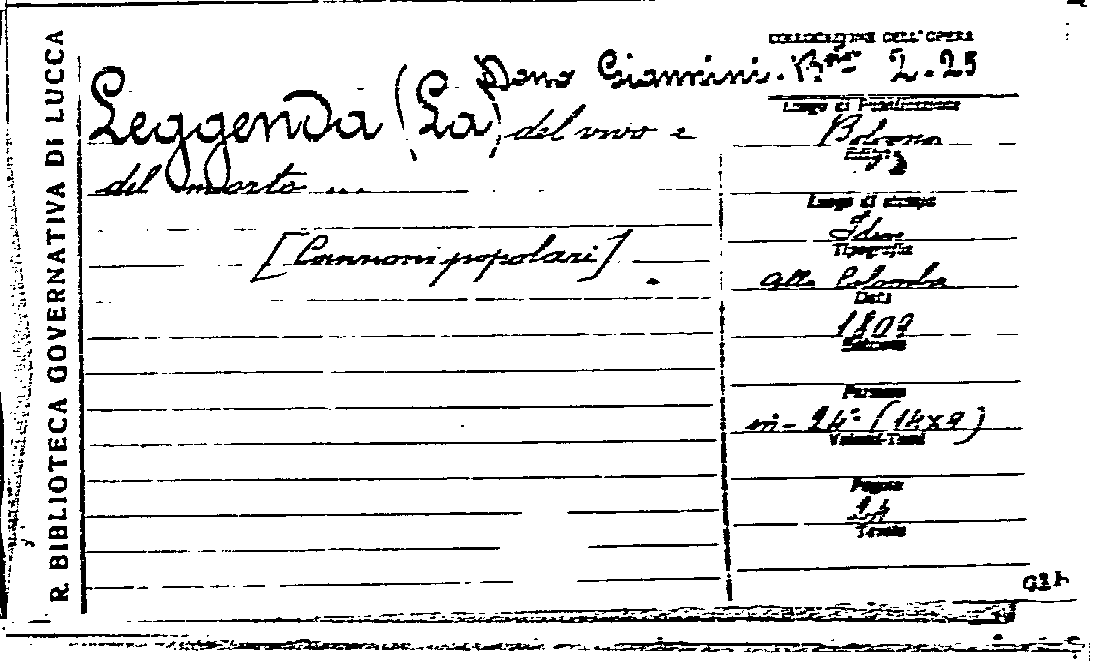 R. BIBLIOTECA GOVERNATIVA DI LUCCA
COLLOCAZIONE DELL'OPERA
Dono Giannini. B.ne 2.25
Leggenda (La) del vivo e
del morto ...
[Canzoni popolari]
Luogo di Pubblicazione
Bologna
Luogo di stampa
Idem
Tipografia
alla Colomba
Data
1809
Edizione
Formato
in-24° (14x9)
Volumi-Tomi
Pagine
24
Tavole